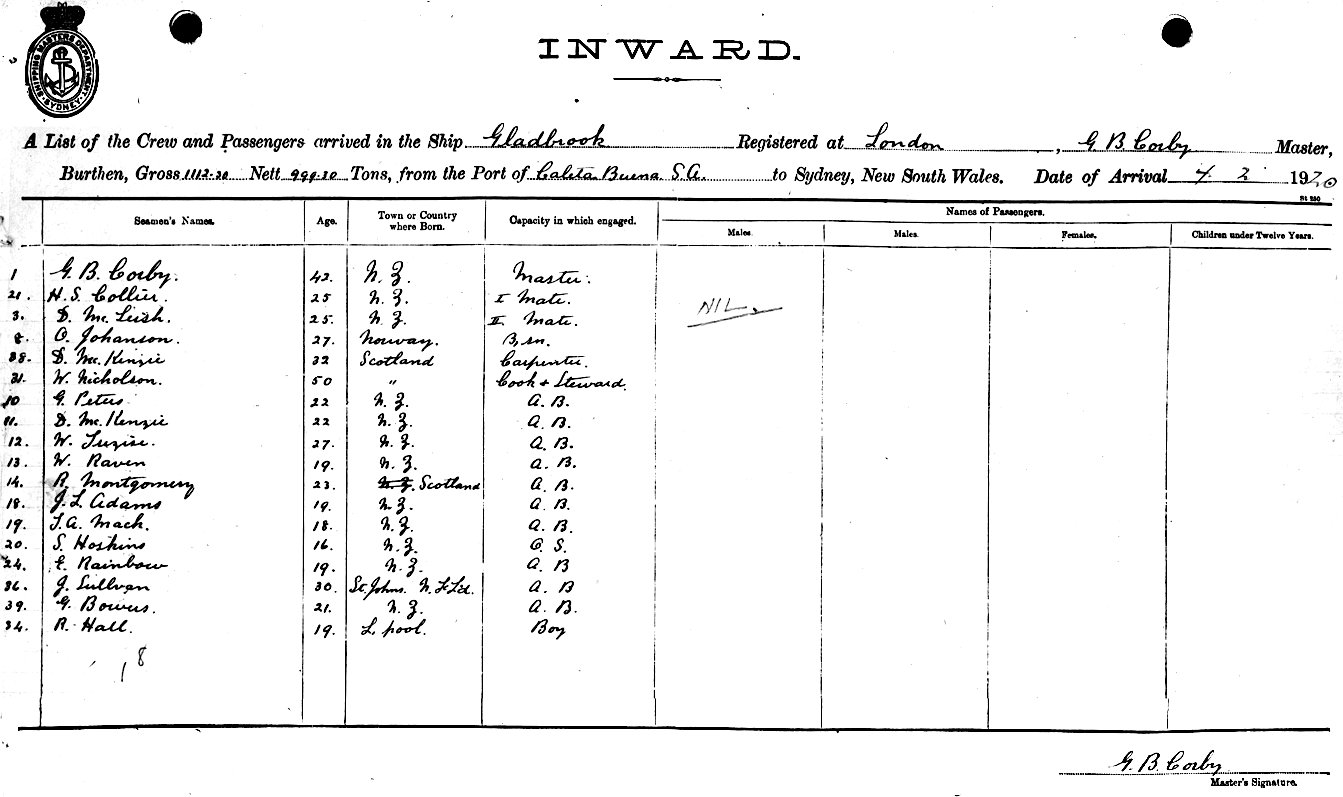 SHIPPING MASTERS DEPARTMENT
SYDNEY
INWARD.
A List of the Crew and Passengers arrived in the Ship Gladbrook Registered at London, G. B. Corby Master,
Burthen, Gross 1112.20 Nett 999.20 Tons, from the Port of Caleta Buena S.A. to Sydney, New South Wales. Date of Arrival 4 2 1920
Names of Passengers.
Seamen's Names. Age. Town or Country where Born. Capacity in which engaged. Males. Males. Females. Children under Twelve Years.
1 G. B. Corby. 42. N. Z. Master.
21. H. S. Collier. 25 N. Z. I Mate. NIL
3. D. Mc. Leish. 25. N. Z. II Mate.
8. O. Johanson. 27. Norway. B,sn.
38. D. Mc. Kinzie 32 Scotland Carpenter.
31. W. Nicholson. 50 " Cook + Steward.
10 G. Peters 22 N. Z. A. B.
11. D. Mc. Kenzie 22 N. Z. A. B.
12. W. 27. N. Z. A. B.
13. W. Raven 19. N. Z. A. B.
14. R. Montgomery 23. N. Z. Scotland A. B.
18. J. L. Adams 19. N. Z. A. B.
19. J. A. Mack. 18. N. Z. A. B.
20 S. Hoskins 16. N. Z. O. S.
24. E. Rainbow 19. N. Z. A. B
36. J. Sullvan 30. St. Johns. N. F. L'd. A. B
39. G. Bowers. 21. N. Z. A. B.
34. R. Hall. 19. L. pool. Boy
18
G. B. Corby
Master's Signature.